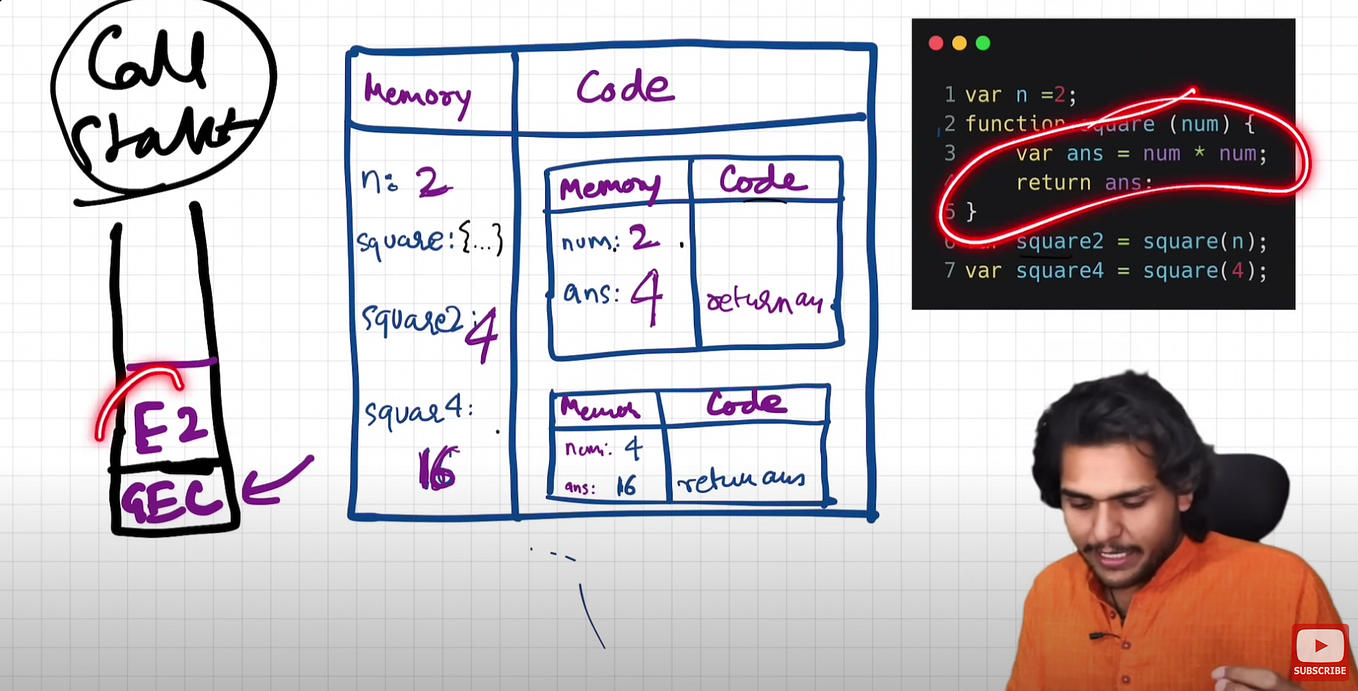 Call
Stakt
E2
GEC
Memory
Code
n: 2
square:{...}
square2: 4
squar4:
16
Memory
Code
num: 2
ans: 4
return an
Code
num: 4
ans: 16
return ans
1 var n =2;
2 function square (num) {
3 var ans = num * num;
return ans;
5 }
6 var square2 = square(n);
7 var square4 = square(4);
SUBSCRIBE